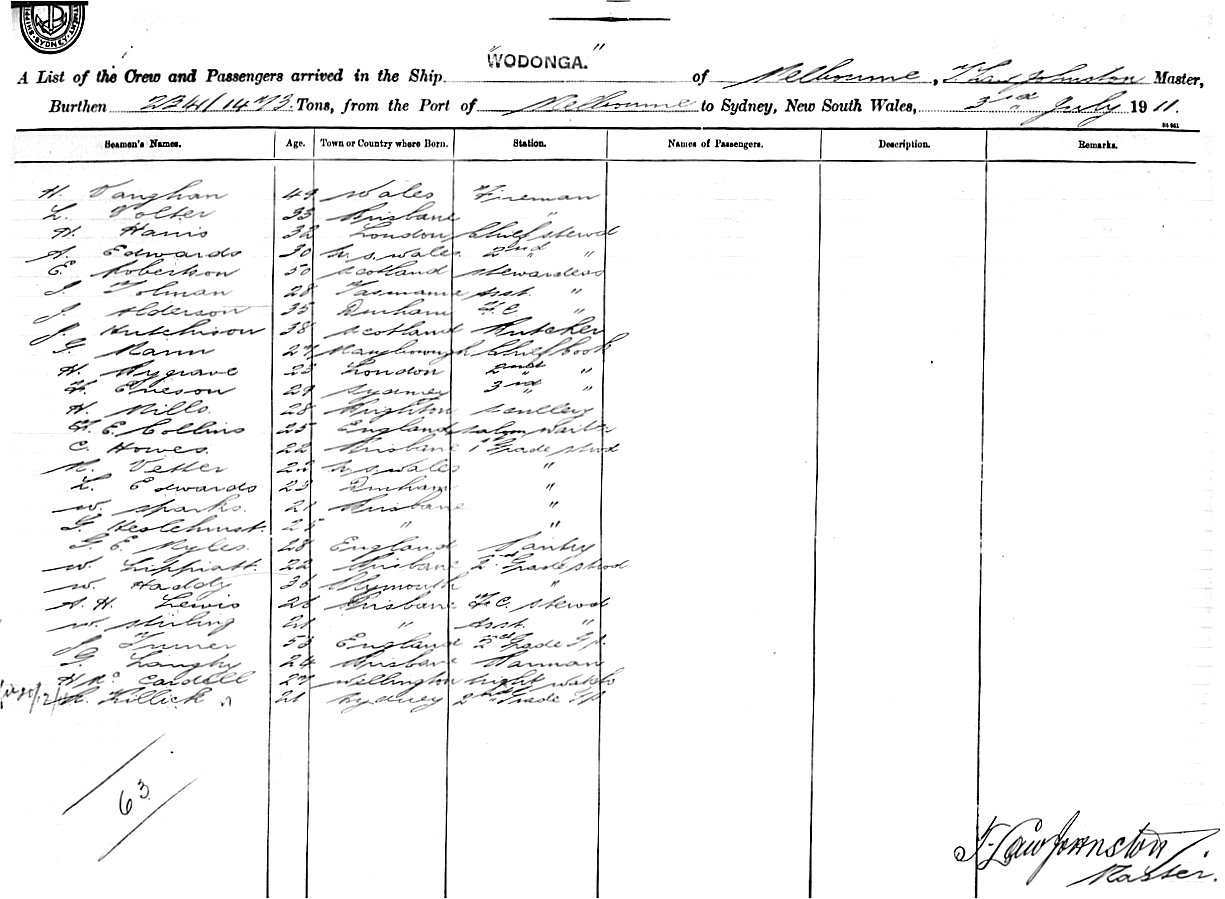 SHIPPING
SYDNEY
"WODONGA."
A List of the Crew and Passengers arrived in the Ship WODONGA. of Melbourne, T Law Johnston Master,
Burthen 2341/1473 Tons, from the Port of Melbourne to Sydney, New South Wales, 3rd July 1911.
Seamen's Names. Age. Town or Country where Born. Station. Names of Passengers. Description. Remarks.
H. Vaughan 49 Wales Fireman
L. Volter 33 Brisbane "
H. Harris 32 London Chief Stewd
A. Edwards 30 N.S. Wales 2nd "
E. Robertson 50 Scotland Stewardess
I. Tolman 28 Tasmania Asst. "
J. Alderson 35 Durham F.C "
J. Hutchison 38 Scotland Butcher
G. Mann 27 Maryborough Chief Cook
H. Mygrave 23 London 2nd "
F. Ericson 29 Sydney 3rd "
H. Mills. 28 Brighton Scullery
F. E. Collins 25 England Saloon Waiter
C. Howes. 22 Brisbane 1st Grade Stewd
Vetter 22 N.S. Wales "
L. Edwards 23 Durham "
W. Sparks. 21 Brisbane "
G. Heslehurst. 25 " "
G. E. Myles. 28 England Pantry
W. Lippiatt. 22 Brisbane 2nd Grade Stewd
W. Haddy 36 Plymouth "
A. H. Lewis 26 Brisbane F.C. Stewd
W. Stirling 21 " Asst. "
J. Turner 53 England 2nd Grade
G. Langby 24 Brisbane Barman
H. Mc Cardell 27 Wellington Night Watch
Killick 21 Sydney 2nd Grade
63
T. Law Johnston
Master.